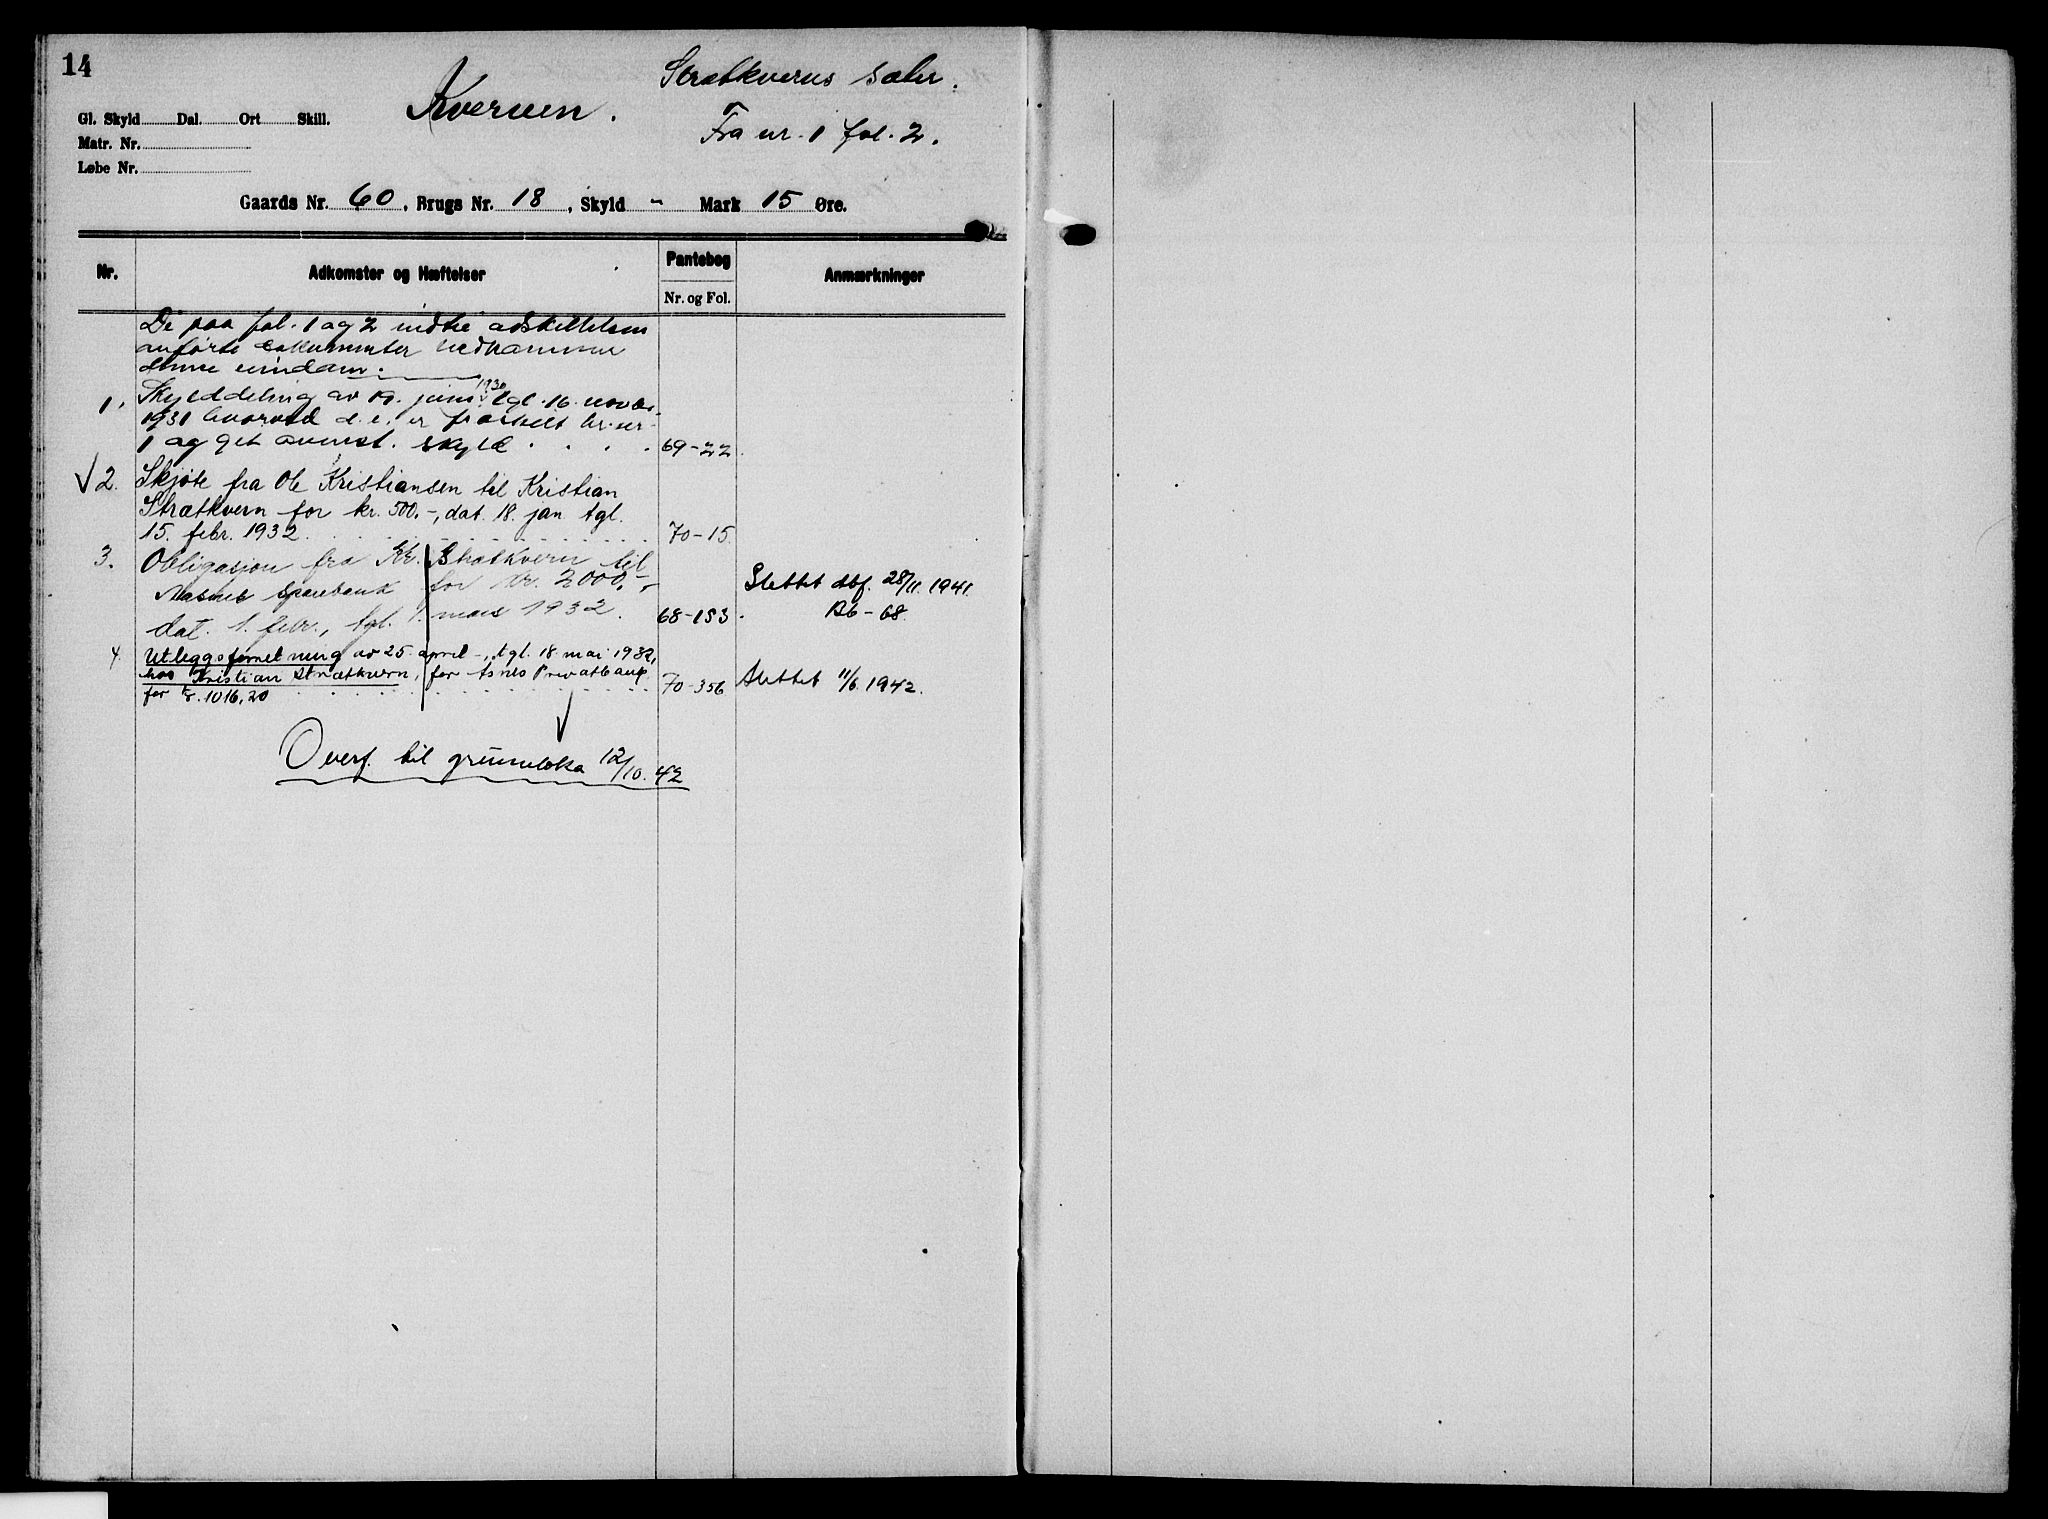 14
Kvernen.
Strætkverns sæter.
Fra nr. 1 fol. 2.
Gl. Skyld Dal. Ort Skill.
Matr. Nr.
Løbe Nr.
Gaards Nr. 60, Brugs Nr. 18, Skyld - Mark 15 Øre.
Nr.
Adkomster og Hæftelser
Pantebog
Nr. og Fol.
Anmærkninger
De paa fol. 1 og 2 indtil adskillelsen
anførte dokumenter vedkommer
denne eiendom.
1. Skylddeling av 19. juni 1930 tgl. 16. novbr.
1931 hvorved d. e. er fraskilt br. nr.
1 og git ovennst. skyld . . . . 69-22.
√ 2. Skjøte fra Ole Kristiansen til Kristian
Strætkvern for kr. 500,-, dat. 18. jan. tgl.
15. febr. 1932 . . . . 70-15.
3. Obligasjon fra Kr. Strætkvern til
Aasnes Sparebank for kr. 2000,-,
dat. 1. febr., tgl. 1. mars 1932. 68-153.
Slettet dbf. 28/11. 1941.
B6-68.
4. Utleggsforretning av 25. april -, tgl. 18. mai 1932,
hos Kristian Strætkvern, for Åsnes Privatbank
for kr. 1016,20 . . . . 70-356
Slettet 11/6. 1942.
Overf. til grunnboka 12/10. 42